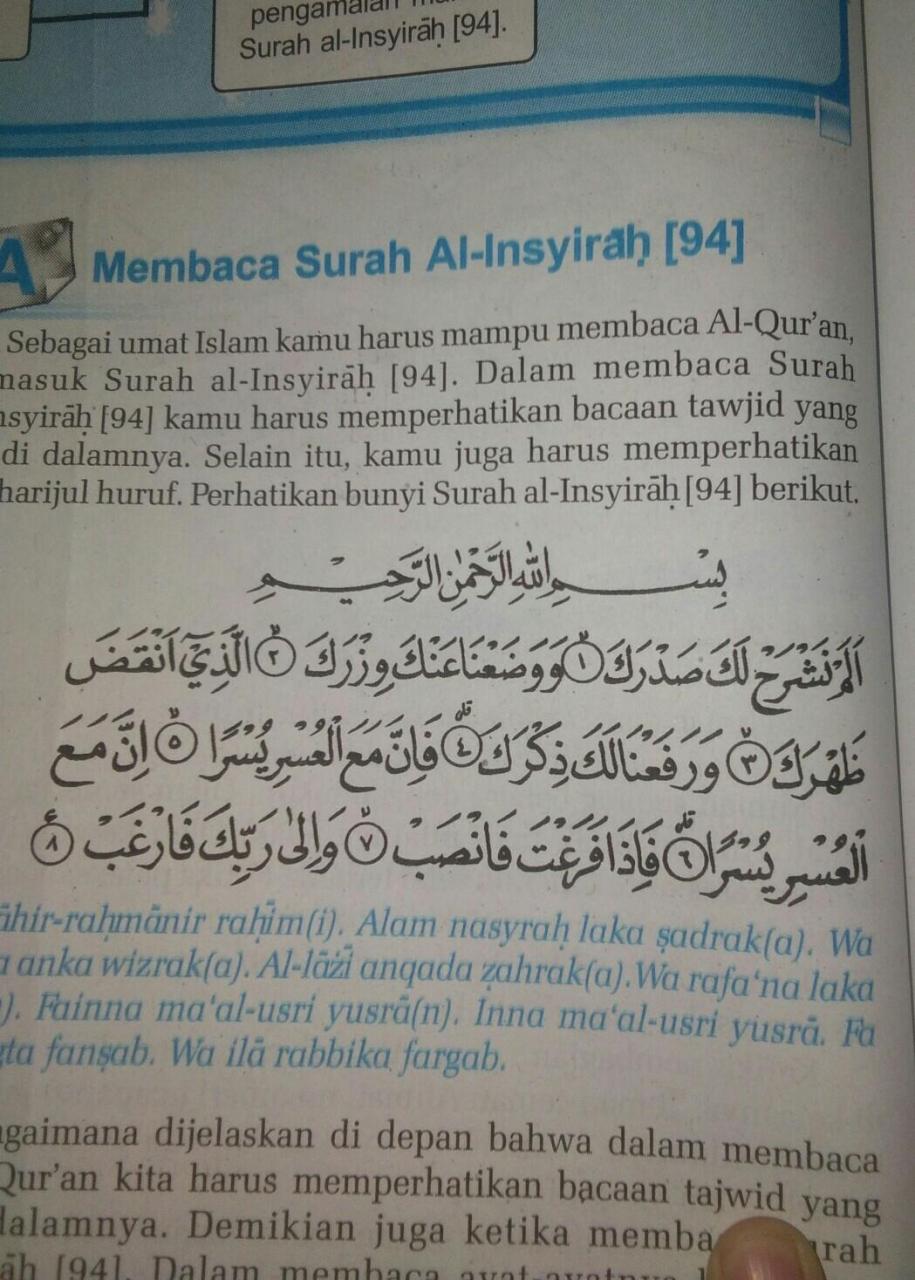 Surah al-Insyirāḥ [94].
A Membaca Surah Al-Insyirāḥ [94]
Sebagai umat Islam kamu harus mampu membaca Al-Qur’an,
masuk Surah al-Insyirāḥ [94]. Dalam membaca Surah
nsyirāḥ [94] kamu harus memperhatikan bacaan tawjid yang
di dalamnya. Selain itu, kamu juga harus memperhatikan
harijul huruf. Perhatikan bunyi Surah al-Insyirāḥ [94] berikut.
بِسْمِ اللّٰهِ الرَّحْمٰنِ الرَّحِيْمِ
اَلَمْ نَشْرَحْ لَكَ صَدْرَكَ ۙ﴿١﴾ وَوَضَعْنَا عَنْكَ وِزْرَكَ ۙ﴿٢﴾ الَّذِيْٓ اَنْقَضَ
ظَهْرَكَ ۙ﴿٣﴾ وَرَفَعْنَا لَكَ ذِكْرَكَ ۗ﴿٤﴾ فَاِنَّ مَعَ الْعُسْرِ يُسْرًا ۙ﴿٥﴾ اِنَّ مَعَ
الْعُسْرِ يُسْرًا ۗ﴿٦﴾ فَاِذَا فَرَغْتَ فَانْصَبْ ۙ﴿٧﴾ وَاِلٰى رَبِّكَ فَارْغَبْ ࣖ﴿٨﴾
āhir-raḥmānir raḥīm(i). Alam nasyraḥ laka ṣadrak(a). Wa
a anka wizrak(a). Al-lāżī anqada ẓahrak(a).Wa rafa‘na laka
). Fainna ma‘al-usri yusrā(n). Inna ma‘al-usri yusrā. Fa
gta fanṣab. Wa ilā rabbika fargab.
agaimana dijelaskan di depan bahwa dalam membaca
Qur’an kita harus memperhatikan bacaan tajwid yang
dalamnya. Demikian juga ketika memba urah
āḥ [94]. Dalam membaca ayat-ayatnya